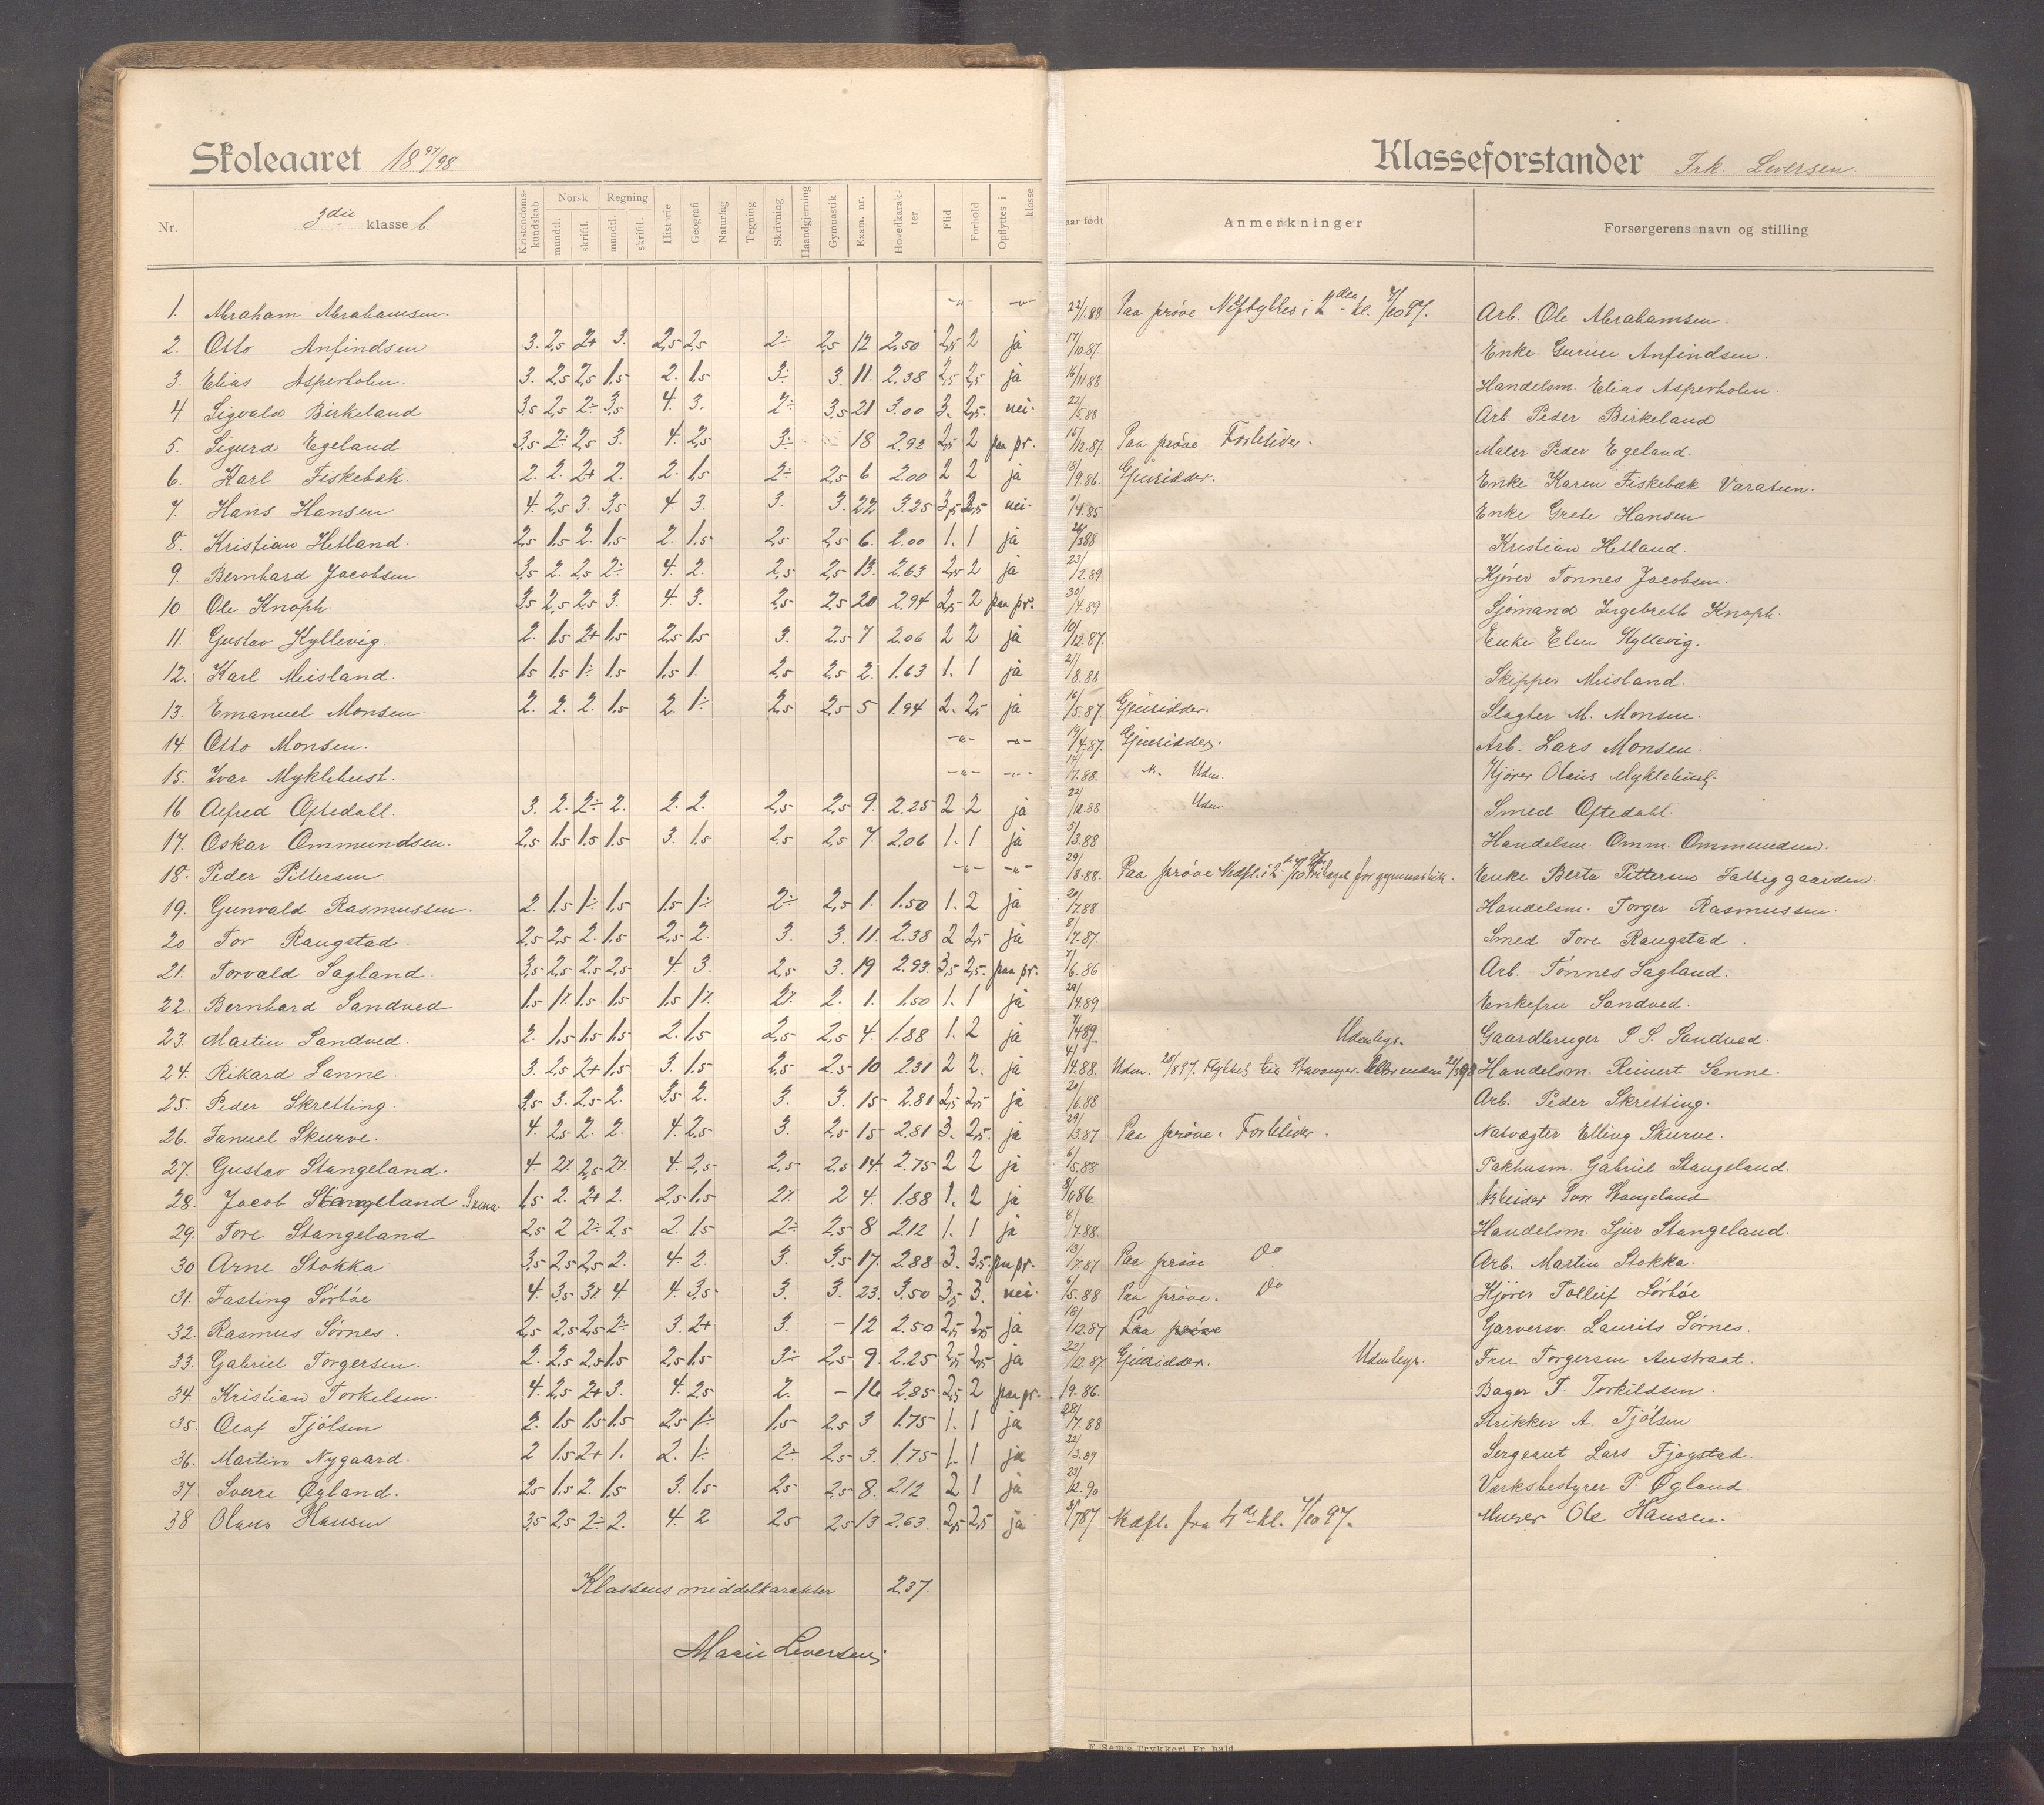 Skoleaaret 18 97/98
Klasseforstander Frk. Leversen.
Nr. 3die klasse b. Kristendomskundskab Norsk mundtl. skriftl. Regning mundtl. skriftl. Historie Geografi Naturfag Tegning Skrivning Haandgjerning Gymnastik Exam. nr. Hovedkarakter Flid Forhold Opflyttes i klasse
aar født Anmerkninger Forsørgerens navn og stilling
1. Abraham Abrahamsen. -"- -"- 22/1.88 Paa prøve Nedflyttes i 2den kl. 7/10 97. Arb. Ole Abrahamsen.
2. Otto Anfindsen 3. 2,5 2+ 3. 2,5 2,5 2÷ 2,5 12 2,50 2,5 2 ja 17/10.87. Enke Gurine Anfindsen.
3. Elias Asperholen. 3. 2,5 2,5 1,5 2. 1,5 3÷ 3. 11. 2.38 2,5 2,5 ja 16/11.88 Handelsm. Elias Asperholen.
4. Sigvald Birkeland 3,5 2,5 2÷ 3,5 4. 3. 2÷ 3,5 21 3.00 3. 2,5. nei. 22/5.88 Arb. Peder Birkeland
5. Sigurd Egeland 3,5 2÷ 2,5 3. 4. 2,5 3÷ - 18 2.92 2,5 2 paa pr. 15/12.87. Paa prøve Forbliver. Maler Peder Egeland
6. Karl Fiskebæk. 2. 2. 2+ 2. 2. 1,5 2÷ 2,5 6 2.00 2 2 ja 18/9.86. Gjensidder. Enke Karen Fiskebæk Varatun.
7. Hans Hansen 4. 2,5 3. 3,5 4. 3. 3. 3. 22 3.25 3,5 2,5 nei. /4.85 Enke Grete Hansen
8. Kristian Hetland. 2,5 1,5 2. 1,5 2. 1,5 2,5 2,5 6. 2.00 1. 1 ja 26/388 Kristian Hetland.
9. Bernhard Jacobsen. 3,5 2. 2,5 2÷ 4. 2. 2,5 2,5 13. 2.63 2,5 2 ja 23/2.89 Kjører Tønnes Jacobsen.
10 Ole Knoph. 3,5 2,5 2,5 3. 4. 3. 2,5 2,5 20 2.94 2,5 2 paa pr. 30/4.89 Sjømand Ingebreth Knoph.
11. Gustav Kyllevig. 2. 1,5 2+ 1,5 2,5 1,5 3. 2,5 7 2.06 2 2 ja 10/12.87. Enke Elen Kyllevig.
12. Karl Meisland. 1,5 1,5 1÷ 1,5 1,5 1. 2,5 2,5 2. 1.63 1. 1 ja 21/8.88 Skipper Meisland.
13. Emanuel Monsen. 2. 2. 2. 1,5 2. 1÷ 2,5 2,5 5 1.94 2. 2,5 ja 16/5.87 Gjensidder. Slagter M. Monsen.
14. Otto Monsen. -"- -"- 19/4.87. Gjensidder. Arb. Lars Monsen.
15. Ivar Myklebust. -"- -"- 14/7.88. Uden. Kjører Olaus Myklebust.
16 Alfred Oftedahl. 3. 2. 2÷ 2. 2. 2. 2,5 2,5 9. 2.25 2 2 ja 22/12.88. Uden. Smed Oftedahl.
17. Oskar Ommundsen. 2,5 1,5 1,5 1,5 3. 1,5 2,5 2,5 7. 2.06 1. 1 ja 5/3.88 Handelsm. Omm. Ommundsen.
18. Peder Pettersen. -"- -"- 29/8.88. Paa prøve Nedfl. i 2 7/10 97 Fritaget for gymnastik. Enke Berta Pettersen Fattiggaarden.
19. Gunvald Rasmussen. 2. 1,5 1÷ 1,5 1,5 1÷ 2÷ 2,5 1. 1.50 1. 2 ja 20/7.88 Handelsm. Torger Rasmussen.
20 Tor Raugstad. 2,5 2,5 2. 1,5 2,5 2. 3. 3. 11. 2.38 2 2,5 ja 8/7.87. Smed Tore Raugstad.
21. Torvald Sagland. 3,5 2,5 2,5 2,5 4. 3. 2,5 3. 19 2.93. 3,5 2,5. paa pr. 7/6.86 Arb. Tønnes Sagland.
22. Bernhard Sandved 1,5 1% 1,5 1,5 1,5 1% 2% 2. 1. 1.50 1. 1 ja 20/4.89 Enkefru Sandved.
23. Martin Sandved. 2. 1,5 1,5 1,5 2. 1,5 2,5 2,5 4. 1.88 1. 2 ja 7/489. Udenbys. Gaardbruger S. S. Sandved.
24. Rikard Sanne. 3. 2,5 2+ 1,5 3. 1,5 2,5 2,5 10 2.31 2 2. ja 4/4.88. Uden. 25/8 97. Flyttet til Stavanger. Handelsm. Reinert Sanne.
25. Peder Skretting. 3,5 3. 2,5 2. 3,5 2. 3. 3. 15 2.81 2,5 2,5. ja 20/6.88 Arb. Peder Skretting.
26. Tanuel Skurve. 4. 2,5 2. 2. 4. 2,5 3. 2,5 15 2.81 3. 2,5. ja 29/3.87. Paa prøve. Forbliver. Natvægter Elling Skurve.
27. Gustav Stangeland. 4. 2% 2,5 2% 4. 2,5 2,5 2,5 14. 2.75 2 2 ja 6/5.88 Pakhusm. Gabriel Stangeland.
28. Jacob Stangeland 1,5 2. 2+ 2. 2,5 1,5 2% 2 4. 1.88 1. 2 ja Arbeider Stangeland
29. Tore Stangeland 2,5 2 2÷ 2,5 2. 1,5 2÷ 2,5 8 2.12 1. 1 ja 8/7.88. Handelsm. Sjur Stangeland.
30 Arne Stokka 3,5 2,5 2,5 2. 4. 2. 3. 3,5 17. 2.88 3. 3,5. paa pr. 13/7.87 Paa prøve Do Arb. Martin Stokka.
31. Fasting Sørbøe 4. 3,5 3% 4. 4. 3,5 3. 3. 23. 3.50 3,5 3. nei. 6/5.88 Paa prøve. Do Kjører Tolleif Sørbøe
32. Rasmus Sørnes. 2,5 2,5 2,5 2÷ 3. 2+ 3. - 12 2.50 2,5 2,5 ja 18/12.87 Paa prøve Garversv. Laurits Sørnes.
33. Gabriel Torgersen. 2. 2,5 2,5 1,5 2,5 1,5 3÷ 2,5 9. 2.25 2,5 2,5 ja 22/12.87. Gjensidder. Udenbys. Fru Torgersen Austraat.
34. Kristian Torkelsen. 4. 2,5 2+ 3. 4. 2,5 2. - 16 2.85 2,5 2 paa pr. /9.86. Bager T. Torkildsen.
35. Olaf Tjølsen 2. 1,5 1,5 1,5 2,5 1÷ 1,5 2,5 3 1.75 1. 1 ja 28/7.88 Strikker A. Tjølsen
36. Martin Nygaard. 2 1,5 2+ 1. 2. 1÷ 2÷ 2,5 3. 1.75 1. 1 ja 22/3.89 Sergeant Lars Fjogstad.
37. Sverre Øgland. 2,5 1,5 2. 1,5 3. 1,5 2,5 2,5 8. 2.12 2 1 ja 23/12.90 Værksbestyrer P. Øgland.
38 Olaus Hansen 3,5 2,5 2÷ 2. 4. 2 2,5 2,5 13 2.63. 2,5 2,5 ja 3/787 Nedfl. fra 4de kl. 7/10 97. Murer Ole Hansen.
Klassens middelkarakter 2.37.
Marie Leversen.
E. Sem's Trykkeri, Fr.hald